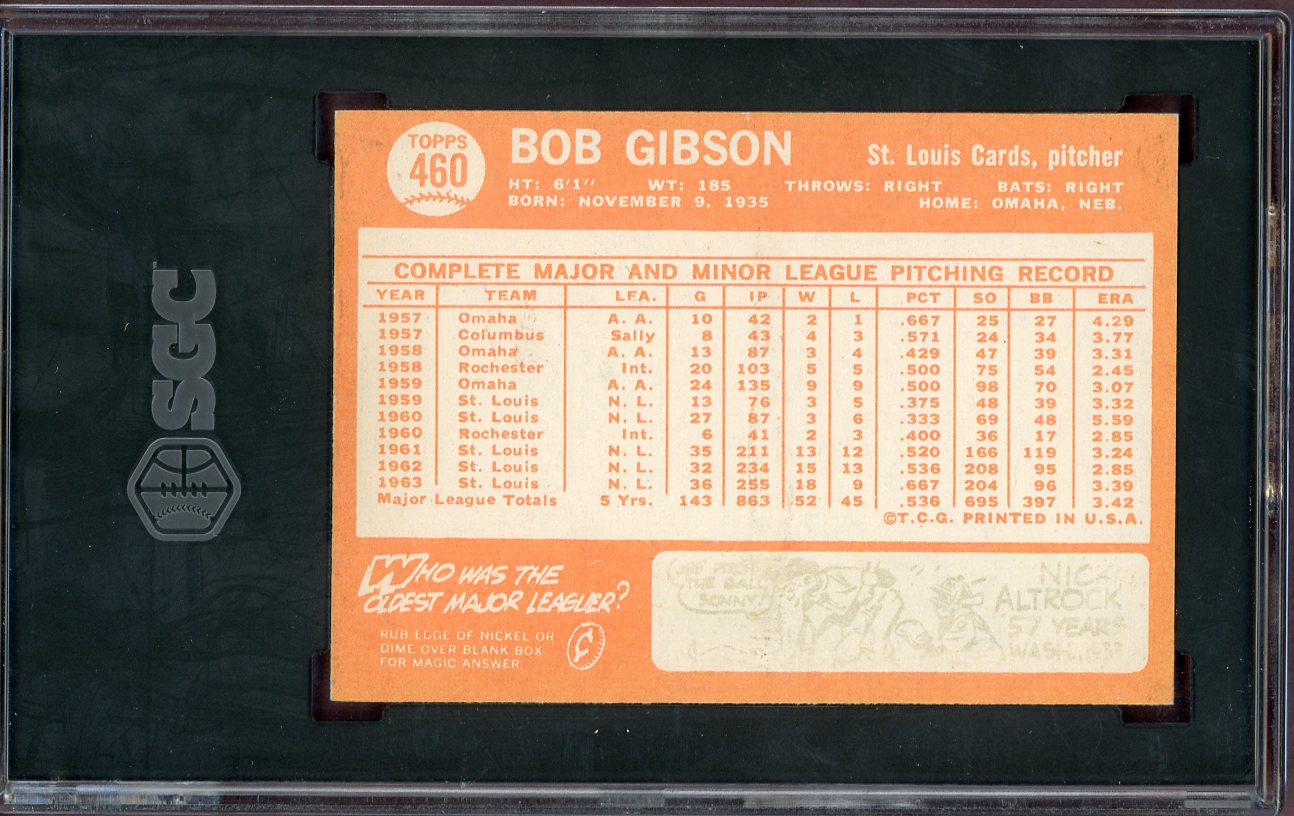 SGC
TOPPS
460
BOB GIBSON
St. Louis Cards, pitcher
HT: 6'1" WT: 185 THROWS: RIGHT BATS: RIGHT
BORN: NOVEMBER 9, 1935 HOME: OMAHA, NEB.
COMPLETE MAJOR AND MINOR LEAGUE PITCHING RECORD
YEAR TEAM LEA. G IP W L PCT SO BB ERA
1957 Omaha A. A. 10 42 2 1 .667 25 27 4.29
1957 Columbus Sally 8 43 4 3 .571 24 34 3.77
1958 Omaha A. A. 13 87 3 4 .429 47 39 3.31
1958 Rochester Int. 20 103 5 5 .500 75 54 2.45
1959 Omaha A. A. 24 135 9 9 .500 98 70 3.07
1959 St. Louis N. L. 13 76 3 5 .375 48 39 3.32
1960 St. Louis N. L. 27 87 3 6 .333 69 48 5.59
1960 Rochester Int. 6 41 2 3 .400 36 17 2.85
1961 St. Louis N. L. 35 211 13 12 .520 166 119 3.24
1962 St. Louis N. L. 32 234 15 13 .536 208 95 2.85
1963 St. Louis N. L. 36 255 18 9 .667 204 96 3.39
Major League Totals 5 Yrs. 143 863 52 45 .536 695 397 3.42
©T.C.G. PRINTED IN U.S.A.
WHO WAS THE
OLDEST MAJOR LEAGUER?
RUB EDGE OF NICKEL OR
DIME OVER BLANK BOX
FOR MAGIC ANSWER
THE BALL
SONNY
NICK
ALTROCK
57 YEARS
WASH.